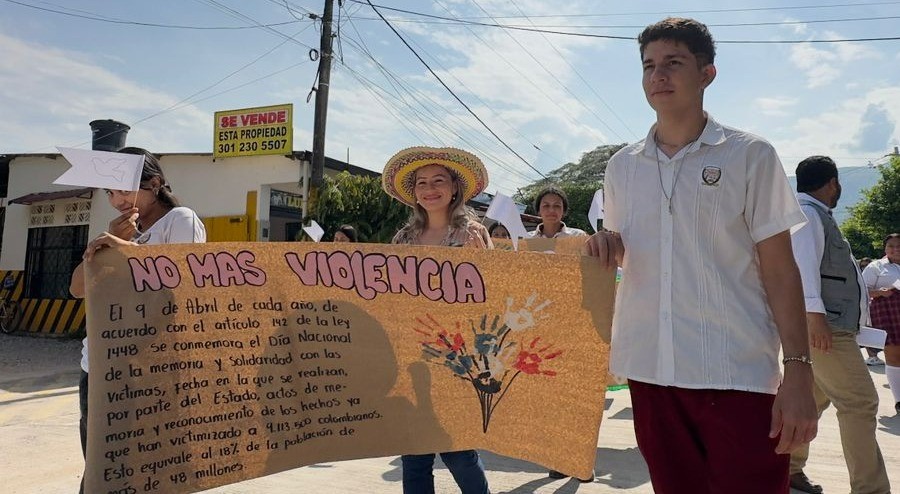 SE VENDE
ESTA PROPIEDAD
301 230 5507
NO MAS VIOLENCIA
El 9 de Abril de cada año, de
acuerdo con el artículo 142 de la ley
1448 se conmemora el Día Nacional
de la memoria y Solidaridad con las
víctimas, Fecha en la que se realizan,
Por parte del Estado, actos de me-
moria y reconocimiento de los hechos ya
que han victimizado a 9.113.500 colombianos.
Esto equivale al 18% de la población de
más de 48 millones.